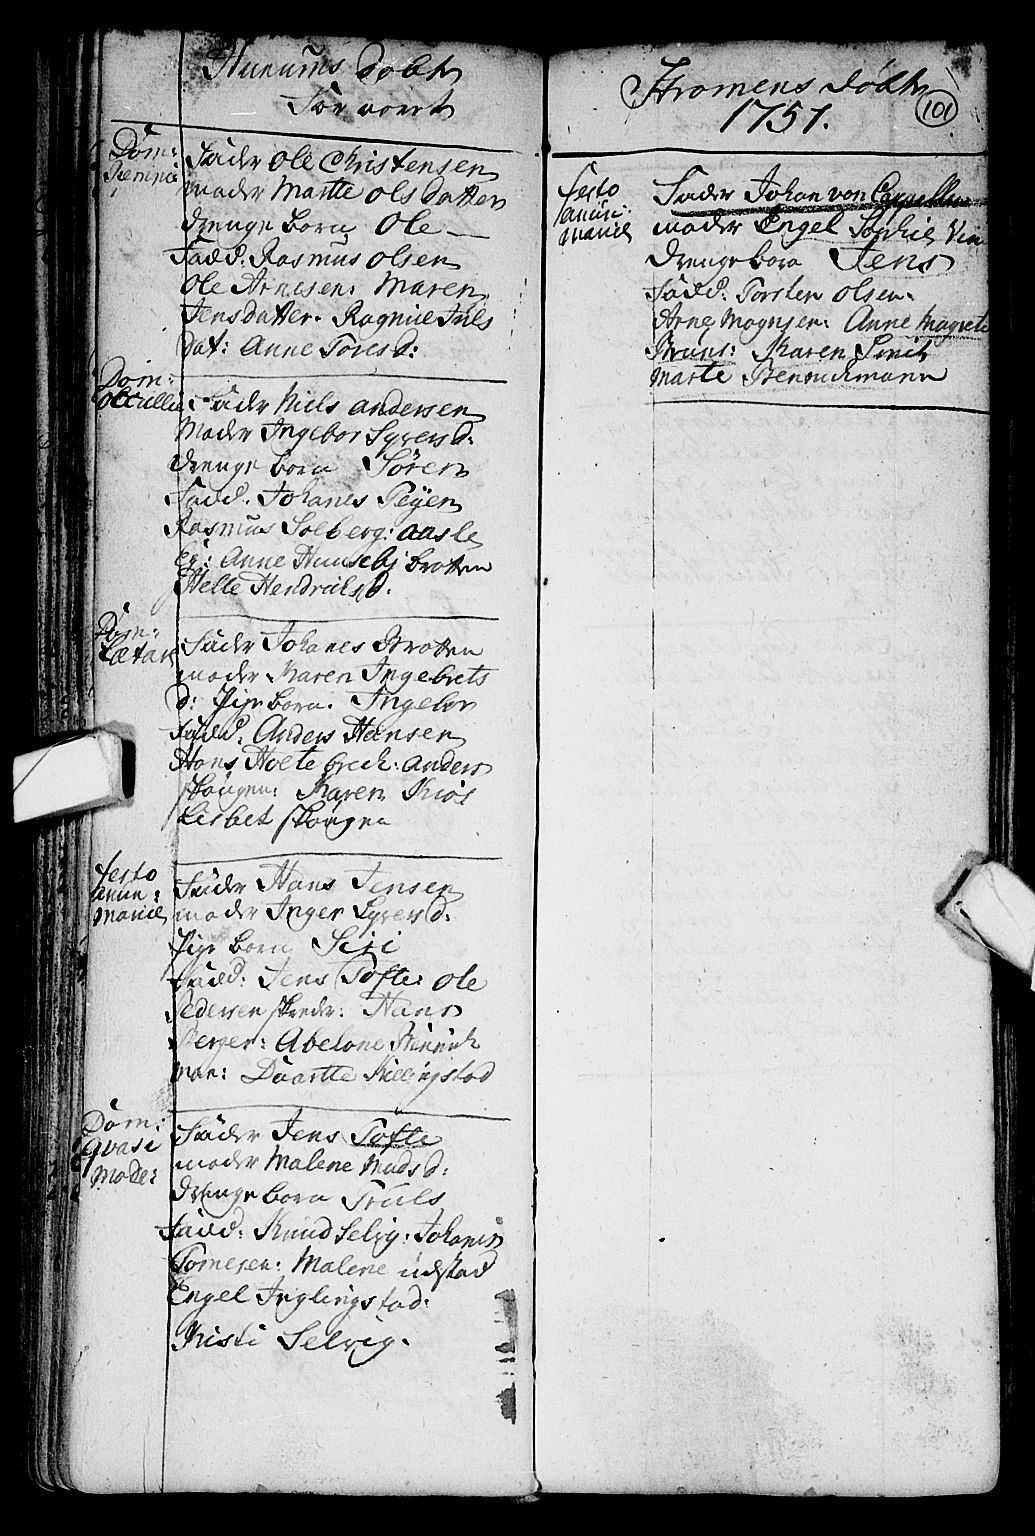 Hurums Døbte
Før voret
Dom:
Remini
Fader Ole Christensen
moder Marte Olsdatter
drenge barn Ole
Fadd. Rasmus Olsen
Ole Arnesen: Maren
Jensdatter. Ragnille Juls
dat: Anne Toresd:
Dom:
Occulli
Fader Niels Andersen
Moder Ingebor Syversd:
drenge barn Søren
Fadd. Johanes
Rasmus Solberg: Aasle
Anne Huuseby Bratten
Helle Hendrichsd.
Dom:
Lætare
Fader Johanes Bratten
moder Karen Ingebrets
d: Pige barn. Ingebor
Fadd. Anders Hansen
Hans Holtebrech: Anders
skougen: Karen Kiøs
Lisbet skougen
festo
anun:
mariæ
Fader Hans Jensen
moder Inger Syversd:
Pige barn Siri
Fadd: Jens Tofte: Ole
Pedersen skreder: Hans
Berger: Abelone Hennich
man: Daartte Killingstad
Dom:
qvasi
Mode:
Fader Jens Tofte
moder Malene Madsd:
drenge barn Truls
Fadd: Knud Selvig: Johanis
Tomesen: Malene udstad
Engel Inglingstad:
Kisti Selvig.
Strømens døbte
1751.
101
festo
anun:
mariæ
Fader Johan von Cappellen
moder Engel Sophie Vin
drenge barn Jens
Fadd: Torsten Olsen.
Arne Mognsen: Anne Magrete
Bruns: Karen Smit
Marte Hennickmann